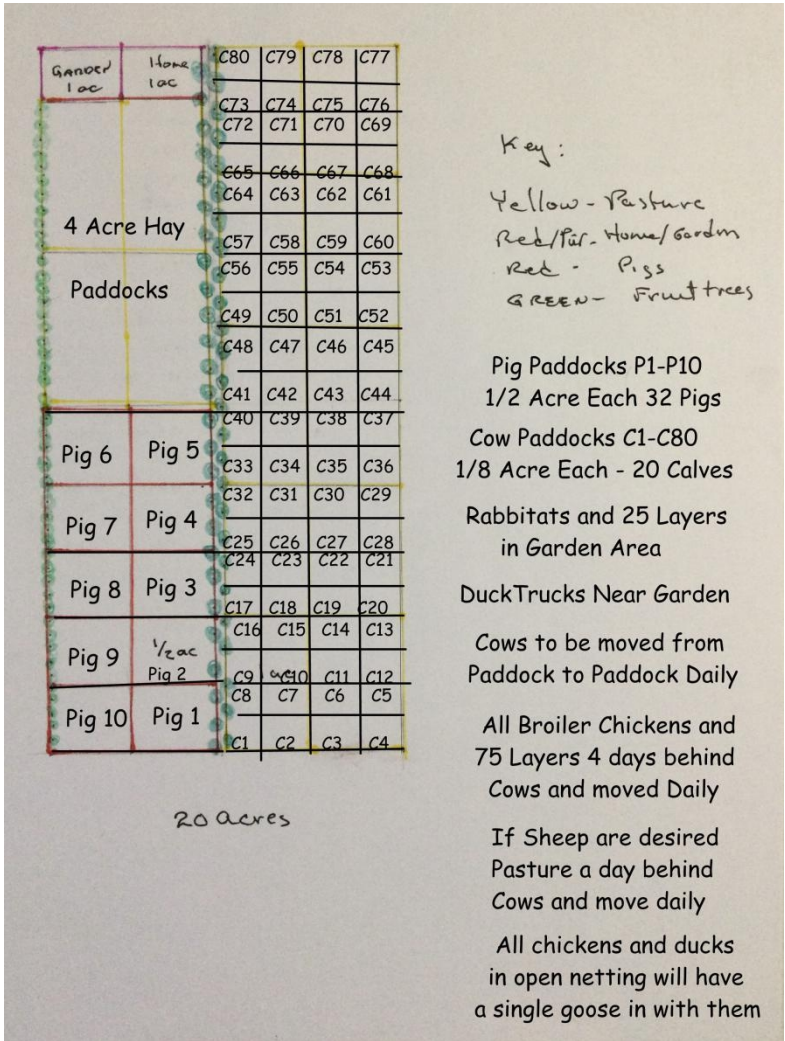 GARDEN
1 ac
Home
1 ac
C80 C79 C78 C77
C73 C74 C75 C76
C72 C71 C70 C69
C65 C66 C67 C68
C64 C63 C62 C61
C57 C58 C59 C60
C56 C55 C54 C53
C49 C50 C51 C52
C48 C47 C46 C45
C41 C42 C43 C44
C40 C39 C38 C37
C33 C34 C35 C36
C32 C31 C30 C29
C25 C26 C27 C28
C24 C23 C22 C21
C17 C18 C19 C20
C16 C15 C14 C13
C9 C10 C11 C12
C8 C7 C6 C5
C1 C2 C3 C4
4 Acre Hay
Paddocks
Pig 6 Pig 5
Pig 7 Pig 4
Pig 8 Pig 3
Pig 9 1/2 ac
Pig 2
Pig 10 Pig 1
20 acres
Key:
Yellow - Pasture
Red/Pur - Home/Garden
Red - Pigs
GREEN - Fruit trees
Pig Paddocks P1-P10
1/2 Acre Each 32 Pigs
Cow Paddocks C1-C80
1/8 Acre Each - 20 Calves
Rabbitats and 25 Layers
in Garden Area
DuckTrucks Near Garden
Cows to be moved from
Paddock to Paddock Daily
All Broiler Chickens and
75 Layers 4 days behind
Cows and moved Daily
If Sheep are desired
Pasture a day behind
Cows and move daily
All chickens and ducks
in open netting will have
a single goose in with them